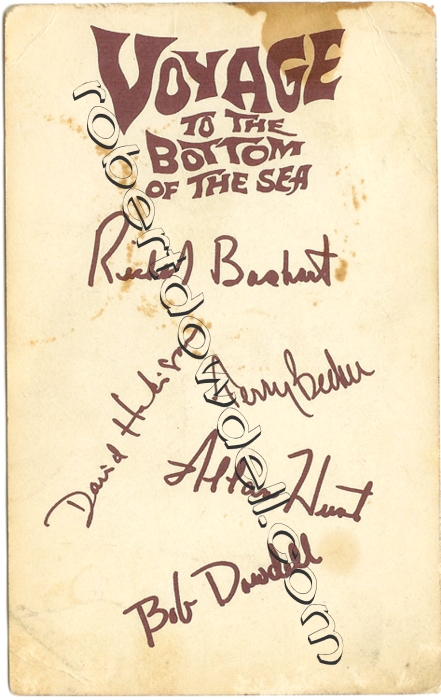 VOYAGE
TO THE
BOTTOM
OF THE SEA
Richard Basehart
David Hedison
Terry Becker
Allan Hunt
Bob Dowdell
robertdowdell.com